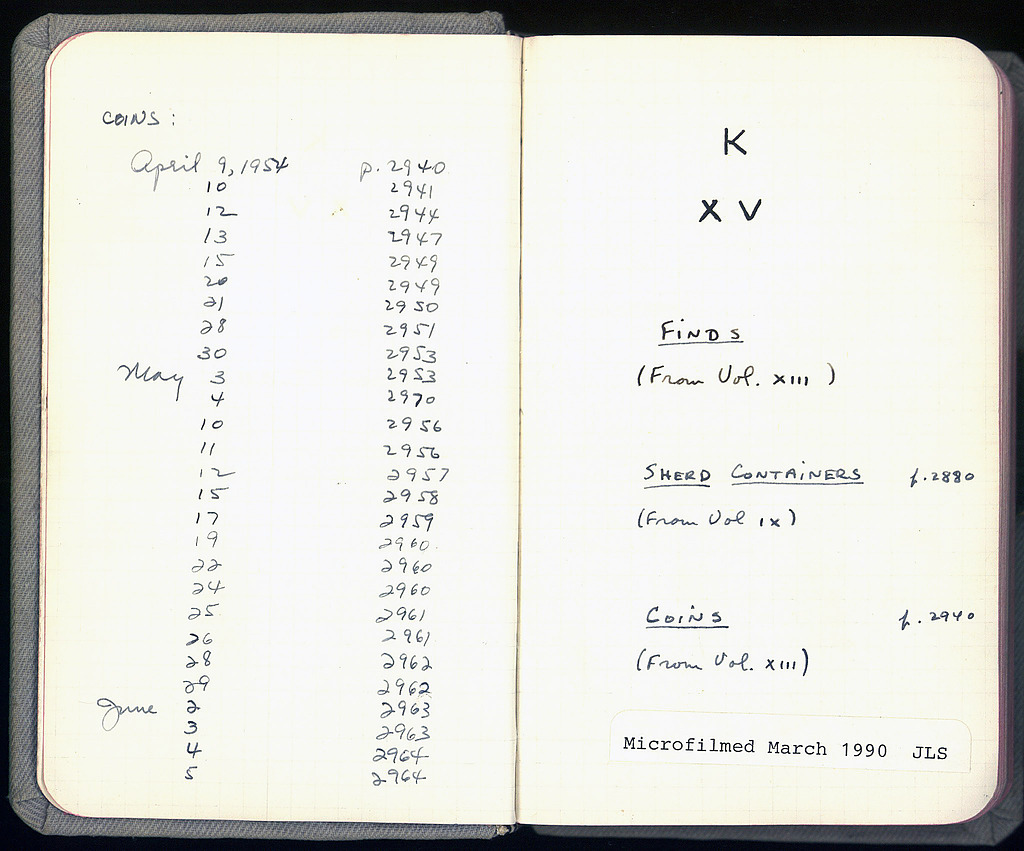 COINS:
April 9, 1954 p. 2940
10 2941
12 2944
13 2947
15 2949
20 2949
21 2950
28 2951
30 2953
May 3 2953
4 2970
10 2956
11 2956
12 2957
15 2958
17 2959
19 2960
22 2960
24 2960
25 2961
26 2961
28 2962
29 2962
June 2 2963
3 2963
4 2964
5 2964
K
XV
FINDS
(From Vol. XIII)
SHERD CONTAINERS p.2880
(From Vol IX)
COINS p. 2940
(From Vol. XIII)
Microfilmed March 1990 JLS